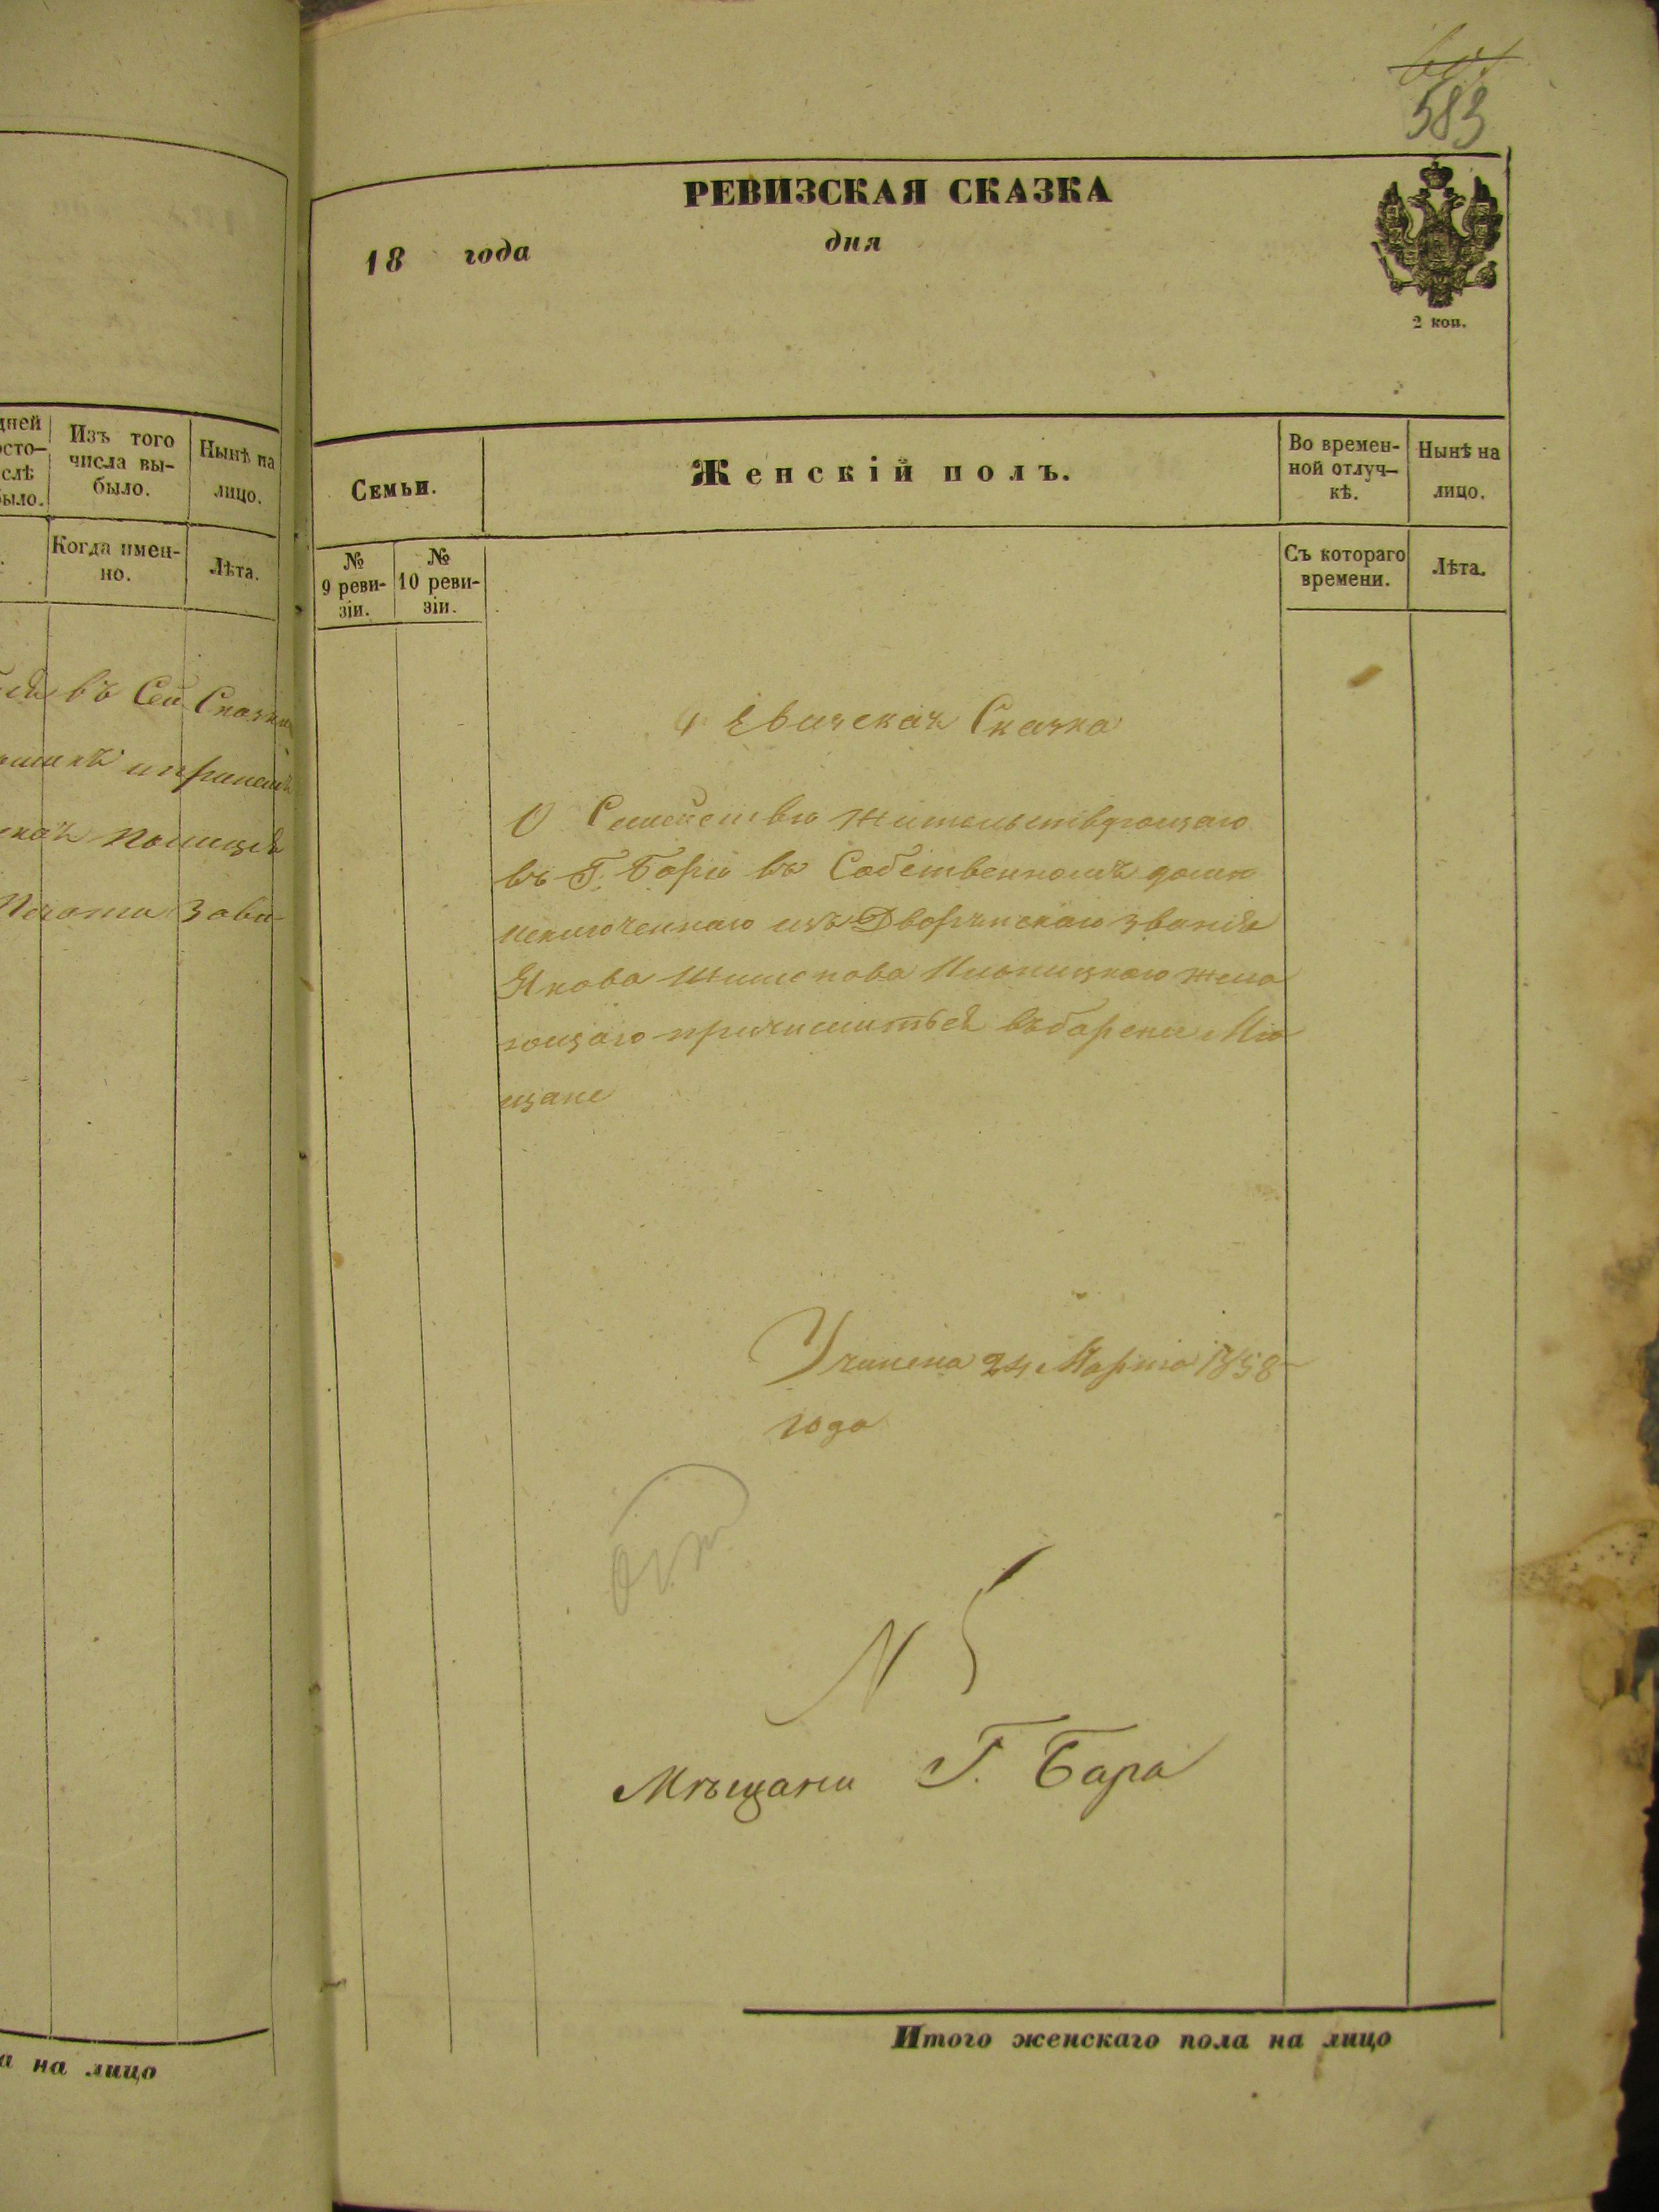 583
РЕВИЗСКАЯ СКАЗКА
18 года дня
2 коп.
Изъ того числа вы-
было.
Нынѣ на
лицо.
Когда имен-
но.
Лѣта.
въ Сей Сказки
Полиция
Печати Заве-
на лицо
Семьи.
Женскій полъ.
Во времен-
ной отлуч-
кѣ.
Нынѣ на
лицо.
№
9 реви-
зіи.
№
10 реви-
зіи.
Съ котораго
времени.
Лѣта.
Ревизская Сказка
О Семействѣ жительствующаго
въ Г. Барѣ въ Собственномъ домѣ
исключеннаго изъ Дворянскаго званія
Якова жела
ющаго причислиться въ барскіи Мѣ
щане
Учинена 24 Марта 1858
года
N 5
Мѣщани Г. Бара
Итого женскаго пола на лицо